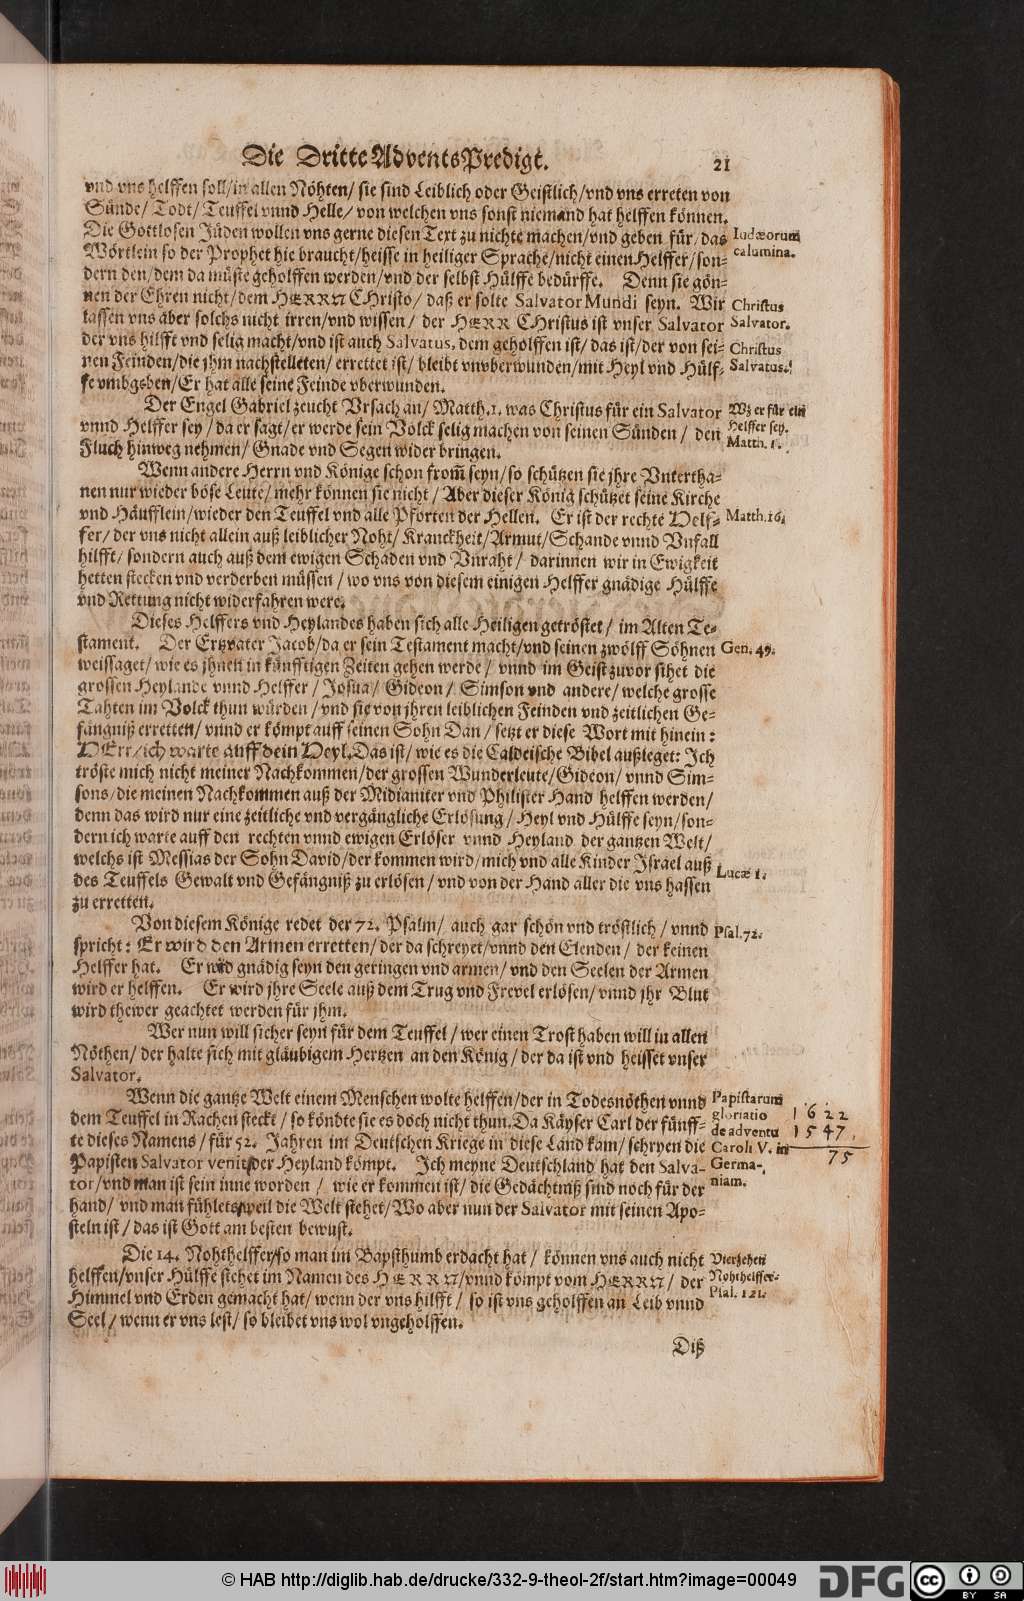 Die Dritte AdventsPredigt.
21
vnd vns helffen soll/in allen Nöhten/ sie sind Leiblich oder Geistlich/vnd vns erreten von
Sünde/ Todt/ Teuffel vnnd Helle/ von welchen vns sonst niemand hat helffen können.
Die Gottlosen Jüden wollen vns gerne diesen Text zu nichte machen/vnd geben für/das
Wörtlein so der Prophet hie braucht/heisse in heiliger Sprache/nicht einen Helffer/son-
dern den/dem da müste geholffen werden/vnd der selbst Hülffe bedürffe. Denn sie gön-
nen der Ehren nicht/dem HERRN CHristo/ daß er solte Salvator Mundi seyn. Wir
lassen vns aber solchs nicht irren/vnd wissen/ der HERR CHristus ist vnser Salvator
der vns hilfft vnd selig macht/vnd ist auch Salvatus, dem geholffen ist/ das ist/der von sei-
nen Feinden/die jhm nachstelleten/ errettet ist/ bleibt vnvberwunden/mit Heyl vnd Hülf-
fe vmbgeben/Er hat alle seine Feinde vberwunden.
Iudæorum
calumina.
Christus
Salvator.
Christus
Salvatus.
Der Engel Gabriel zeucht Vrsach an/ Matth.1. was Christus für ein Salvator
vnnd Helffer sey/da er sagt/er werde sein Volck selig machen von seinen Sünden/ den
Fluch hinweg nehmen/ Gnade vnd Segen wider bringen.
Wz er für ein
Helffer sey.
Matth. 1.
Wenn andere Herrn vnd Könige schon from̃ seyn/so schützen sie jhre Vntertha-
nen nur wieder böse Leute/mehr können sie nicht/ Aber dieser König schützet seine Kirche
vnd Häufflein/wieder den Teuffel vnd alle Pforten der Hellen. Er ist der rechte Helf-
fer/der vns nicht allein auß leiblicher Noht/Kranckheit/Armut/Schande vnnd Vnfall
hilfft/sondern auch auß dem ewigen Schaden vnd Vnraht/ darinnen wir in Ewigkeit
hetten stecken vnd verderben müssen/ wo vns von diesem einigen Helffer gnädige Hülffe
vnd Rettung nicht widerfahren were.
Matth.16.
Dieses Helffers vnd Heylandes haben sich alle Heiligen getröstet/ im Alten Te-
stament. Der Ertzvater Jacob/da er sein Testament macht/vnd seinen zwölff Söhnen
weissaget/wie es jhnen in künfftigen Zeiten gehen werde/ vnnd im Geist zuvor sihet die
grossen Heylande vnnd Helffer/ Josua/ Gideon/ Simson vnd andere/welche grosse
Tahten im Volck thun würden/vnd sie von jhren leiblichen Feinden vnd zeitlichen Ge-
fängniß erretten/ vnnd er kömpt auff seinen Sohn Dan/ setzt er diese Wort mit hinein:
HErr/ich warte auff dein Heyl. Das ist/wie es die Caldeische Bibel außleget: Ich
tröste mich nicht meiner Nachkommen/der grossen Wunderleute/Gideon/ vnnd Sim-
sons/die meinen Nachkommen auß der Midianiter vnd Philister Hand helffen werden/
denn das wird nur eine zeitliche vnd vergängliche Erlösung/Heyl vnd Hülffe seyn/son-
dern ich warte auff den rechten vnnd ewigen Erlöser vnnd Heyland der gantzen Welt/
welchs ist Messias der Sohn David/der kommen wird/mich vnd alle Kinder Israel auß
des Teuffels Gewalt vnd Gefängniß zu erlösen/vnd von der Hand aller die vns hassen
zu erretten.
Gen. 49.
Lucæ 1.
Von diesem Könige redet der 72. Psalm/ auch gar schön vnd tröstlich/ vnnd
spricht: Er wird den Armen erretten/der da schreyet/vnnd den Elenden/ der keinen
Helffer hat. Er wird gnädig seyn den geringen vnd armen/vnd den Seelen der Armen
wird er helffen. Er wird jhre Seele auß dem Trug vnd Frevel erlösen/vnnd jhr Blut
wird thewer geachtet werden für jhm.
Psal.72.
Wer nun will sicher seyn für dem Teuffel/wer einen Trost haben will in allen
Nöthen/der halte sich mit gläubigem Hertzen an den König/der da ist vnd heisset vnser
Salvator.
Wenn die gantze Welt einem Menschen wolte helffen/der in Todesnöthen vnnd
dem Teuffel in Rachen steckt/so köndte sie es doch nicht thun. Da Käyser Carl der fünff-
te dieses Namens/für 52. Jahren im Deutschen Kriege in diese Land kam/schryen die
Papisten Salvator venit, der Heyland kömpt. Ich meyne Deutschland hat den Salva-
tor/vnd man ist sein inne worden/ wie er kommen ist/die Gedächtniß sind noch für der
hand/ vnd man fühlets/weil die Welt stehet/Wo aber nun der Salvator mit seinen Apo-
steln ist/das ist Gott am besten bewust.
Papistarum
gloriatio
de adventu
Caroli V. in
Germa-
niam.
1622
1547.
75
Die 14. Nohthelffer/so man im Bapsthumb erdacht hat/ können vns auch nicht
helffen/vnser Hülffe stehet im Namen des HERRN/vnnd kömpt vom HERRN/ der
Himmel vnd Erden gemacht hat/wenn der vns hilfft/ so ist vns geholffen an Leib vnnd
Seel/wenn er vns lest/so bleibet vns wol vngeholffen.
Vierzehen
Nohthelffer.
Psal. 121.
Diß
© HAB http://diglib.hab.de/drucke/332-9-theol-2f/start.htm?image=00049
DFG
cc BY SA